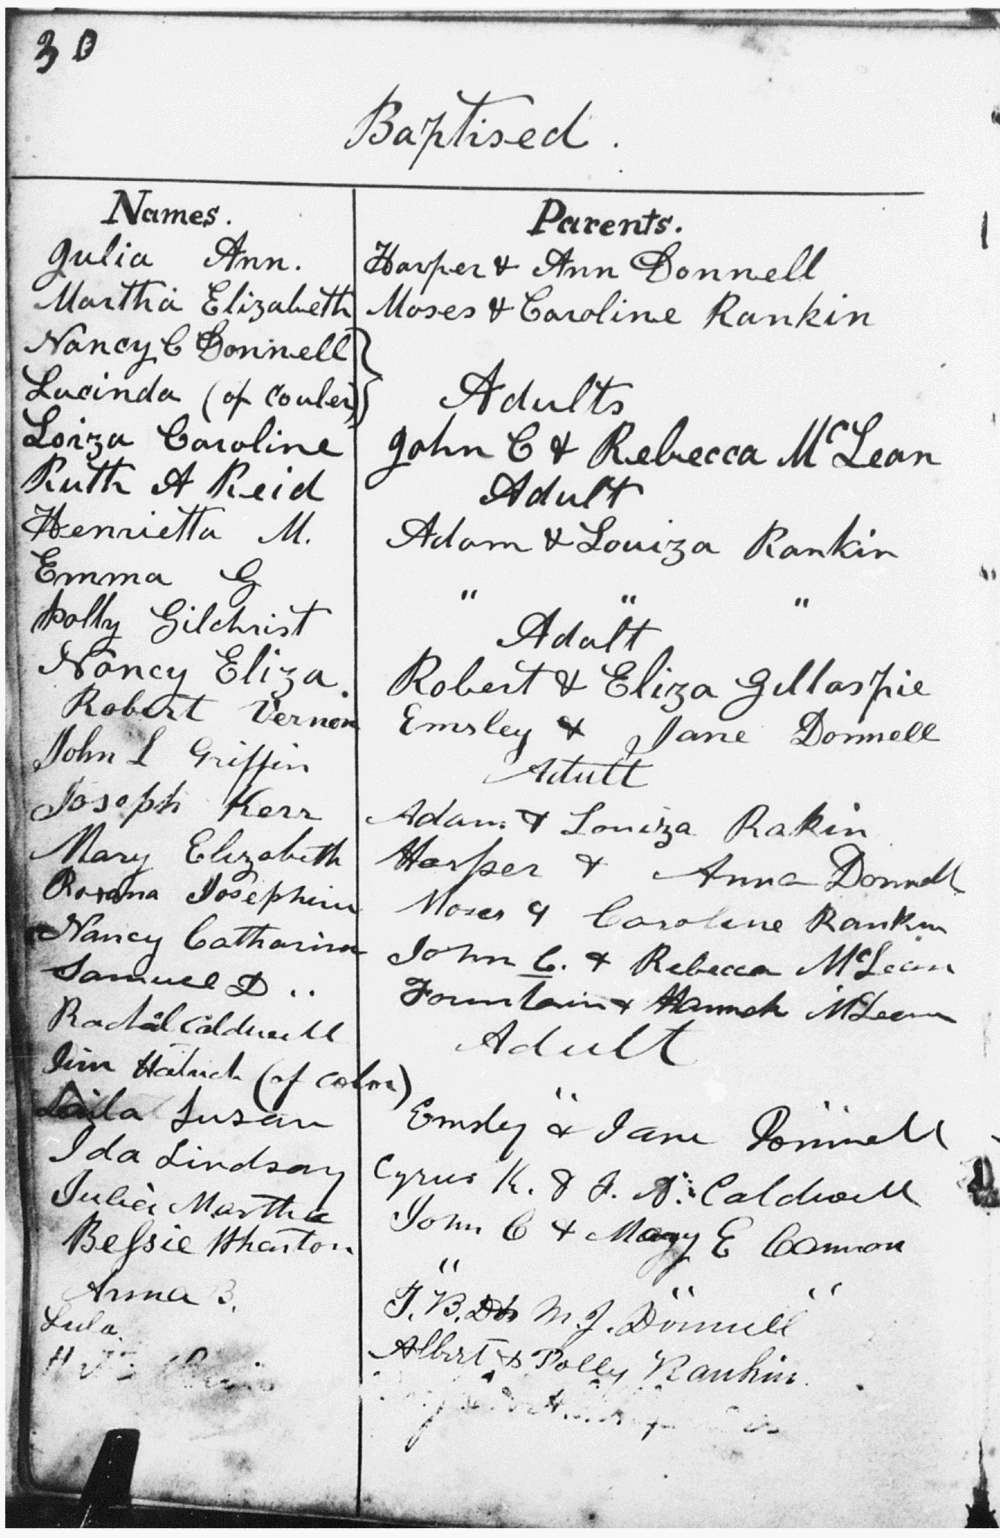 30
Baptised.
Names. Parents.
Julia Ann. Harper & Ann Donnell
Martha Elizabeth Moses & Caroline Rankin
Nancy C Donnell
Lucinda (of Couler) Adults
Loiza Caroline John C & Rebecca McLean
Ruth A Reid Adult
Henrietta M. Adam & Louiza Rankin
Emma G " " "
Polly Gilchrist Adult
Nancy Eliza. Robert & Eliza Gillaspie
Robert Vernon Emsley & Jane Donnell
John L Griffin Adult
Joseph Kerr Adam & Louiza Rakin
Mary Elizabeth Harper & Anna Donnell
Roxana Josephine Moses & Caroline Rankin
Nancy Catharine John C. & Rebecca McLean
Samuel D .. Fountain & Hannah McLean
Rachal Caldwell Adult
Jim (of color) " "
Susan Emsley & Jane Donnell
Ida Lindsay Cyrus K. & J. A. Caldwell
Julia Martha John C & Mary E Cannon
Bessie Wharton " " "
Anna B. T. B. M. J. Donnell
Lula. Albert & Polly Rankin.